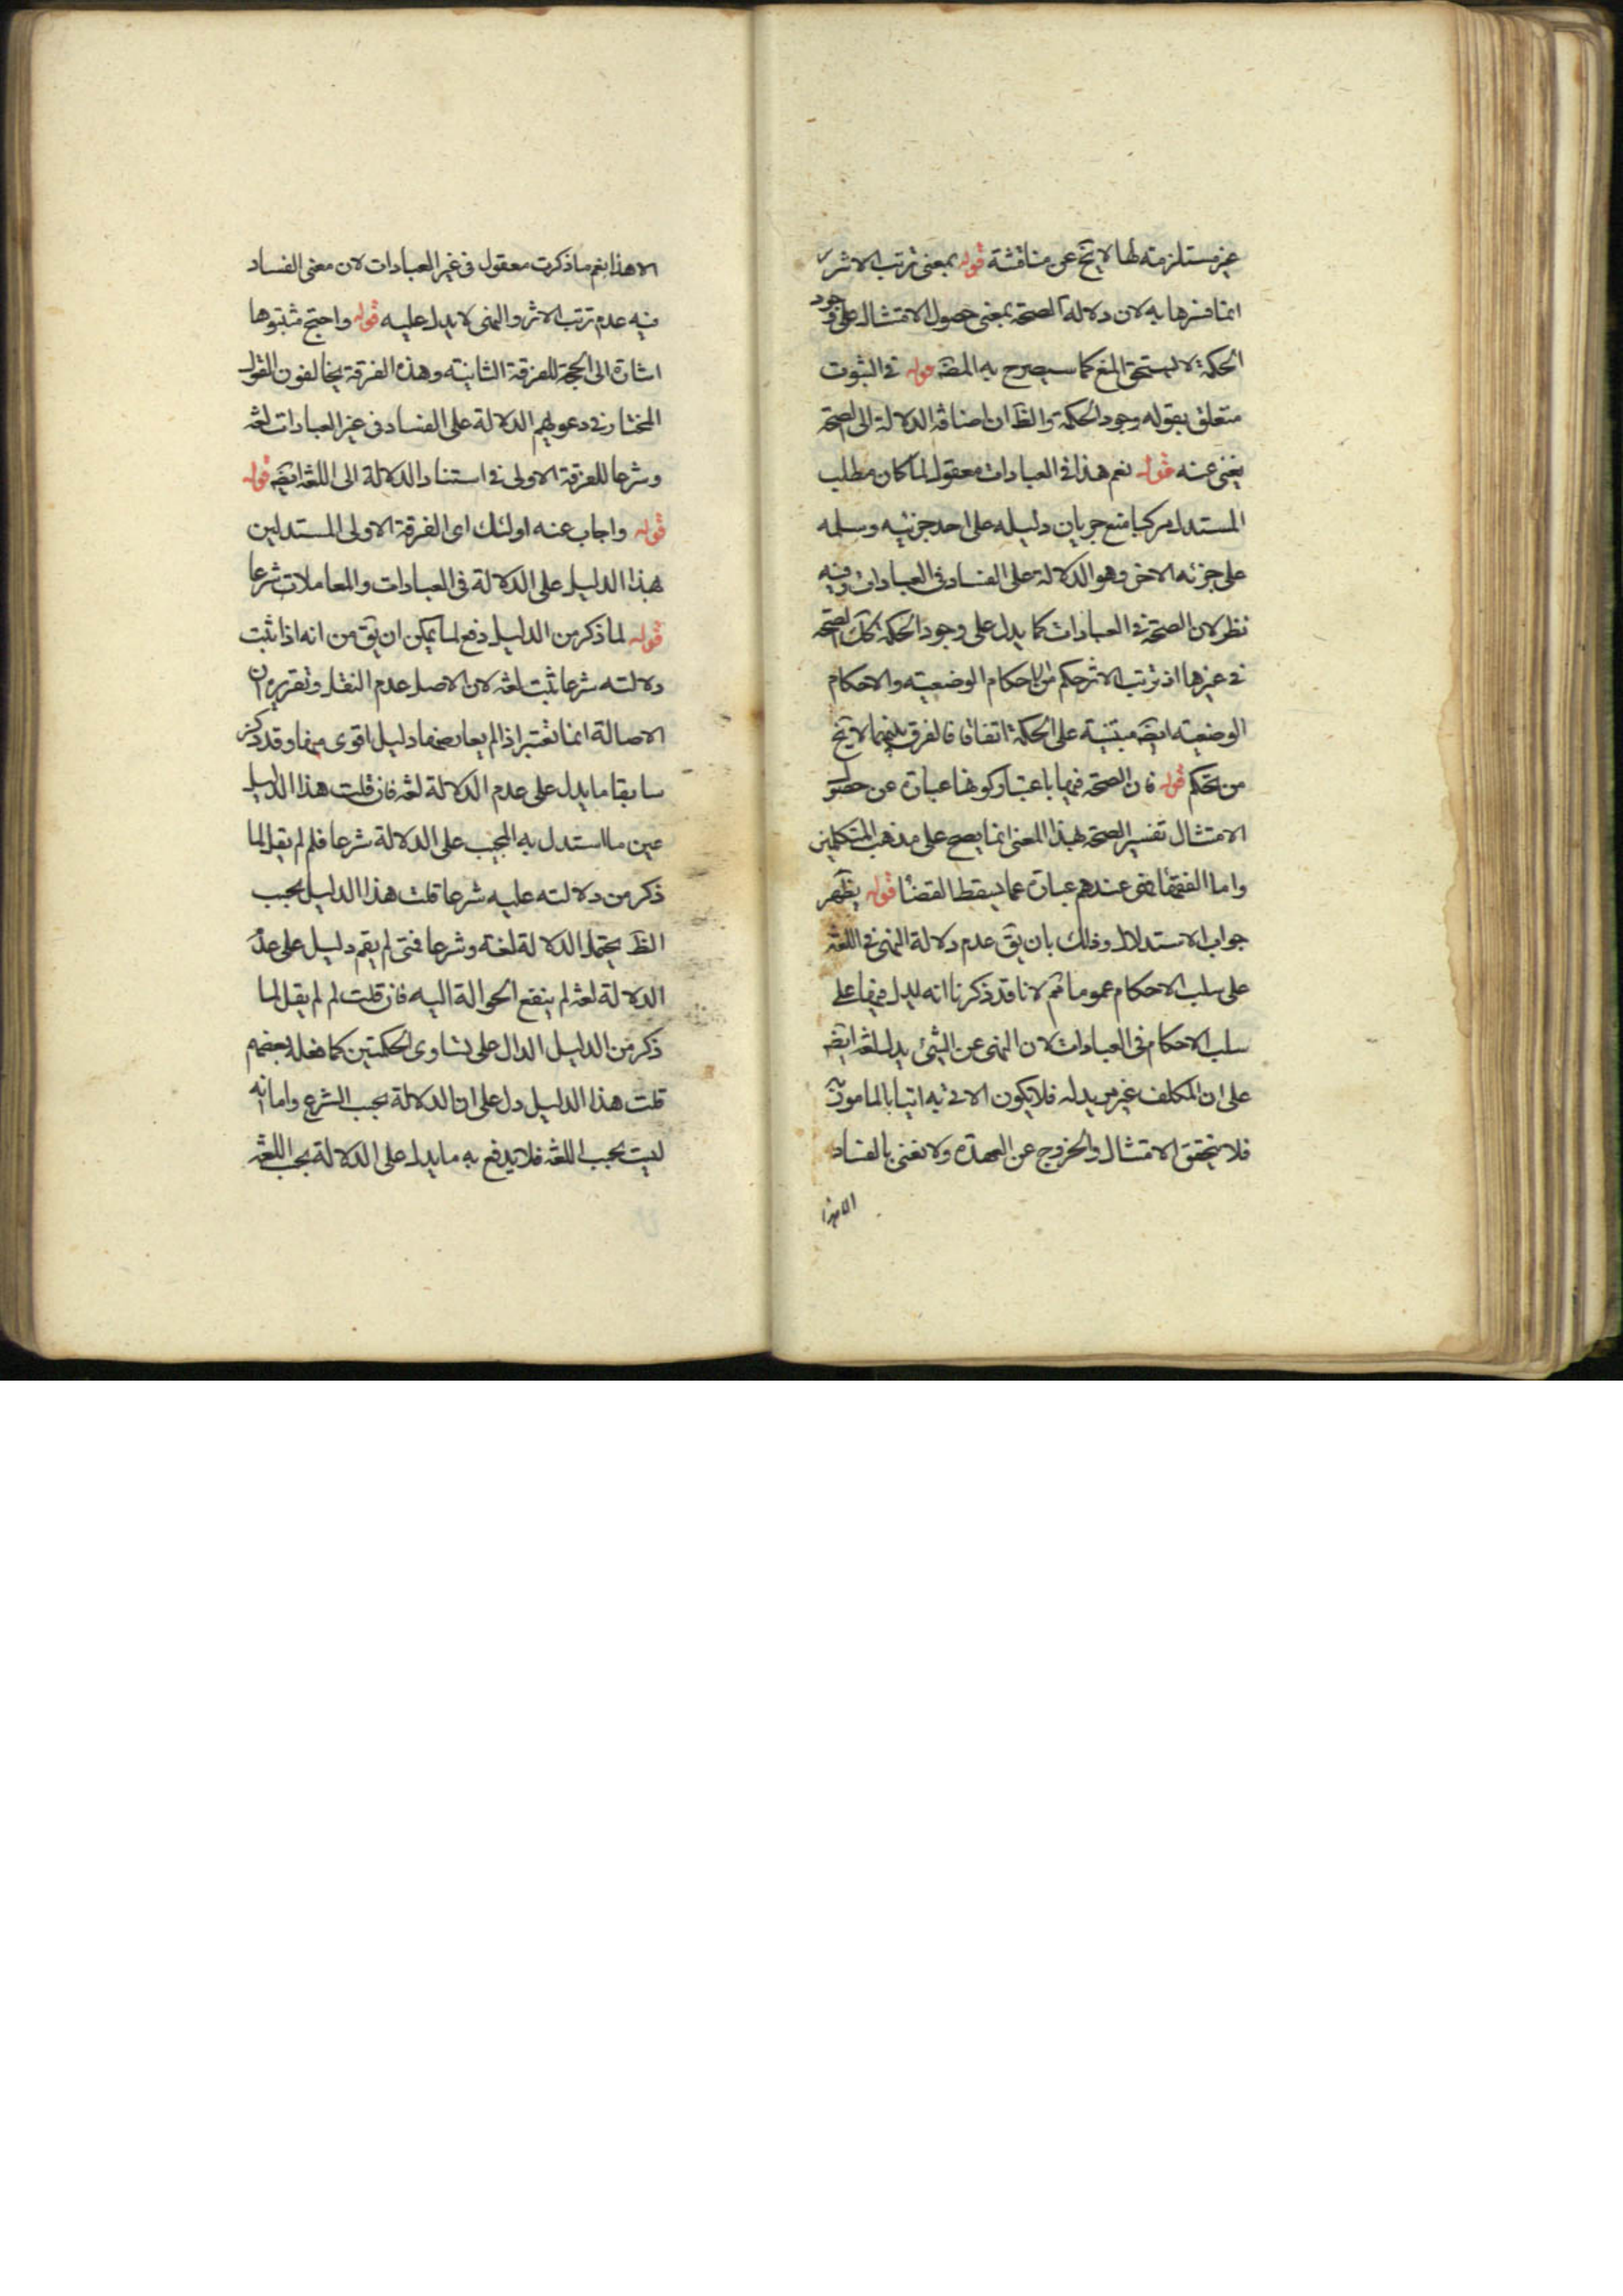 غير مستلزمة لها لا يخ عن مناقشة قوله بمعنى ترتب الاثر
انما فسرها به لان دلالة الصحة بمعنى حصول الامتثال على وجود
الحكمة لا يستحق المنع كما سيصرح به المصـ قوله في الثبوت
متعلق بقوله وجود الحكمة والظ ان اضافة الدلالة الى الصحة
يغنى عنه قوله نعم هذا في العبادات معقول لما كان مطلب
المستدل مركبا منع جريان دليله على احد جزئيه وسلمه
على جزئه الاخر وهو الدلالة على الفساد في العبادات وفيه
نظر لان الصحة في العبادات كما يدل على وجود الحكمة كك الصحة
في غيرها اذ ترتب الاثر حكم من الاحكام الوضعية والاحكام
الوضعية ايضـ مبتنية على الحكمة اتفاقا فالفرق بينهما لا يخ
من تحكم قوله فان الصحة فيها باعتبار كونها عبارة عن حصول
الامتثال تفسير الصحة بهذا المعنى انما يصح على مذهب المتكلمين
واما الفقهاء فهي عندهم عبارة عما يسقط القضاء قوله يظهر
جواب الاستدلال وذلك بان يق عدم دلالة النهي في اللغة
على سلب الاحكام عموما ثم لانا قد ذكرنا انه ليدل فيها على
سلب الاحكام في العبادات لان النهي عن الشئ يدل لغة ايضـ
على ان المكلف غير مريد له فلا يكون الاتي به اتيا بالمامور به
فلا يتحقق الامتثال والخروج عن العهدة ولا نعنى بالفساد
الا هذا
الا هذا نعم ما ذكرت معقول في غير العبادات لان معنى الفساد
فيه عدم ترتب الاثر والنهي لا يدل عليه قوله واحتج مثبتوها
اشارة الى الحجة للفرقة الثانية وهذه الفرقة يخالفون القول
المختار في دعويهم الدلالة على الفساد في غير العبادات لغة
وشرعا للفرقة الاولى في استناد الدلالة الى اللغة ايضـ قوله
قوله واجاب عنه اولئك اي الفرقة الاولى المستدلين
بهذا الدليل على الدلالة في العبادات والمعاملات شرعا
قوله لما ذكر من الدليل دفع لما يمكن ان يق من انه اذا ثبت
دلالته شرعا ثبت لغة لان الاصل عدم النقل وتقريره ان
الاصالة انما تعتبر اذا لم يعارضها دليل اقوى منها وقد ذكر
سابقا ما يدل على عدم الدلالة لغة فان قلت هذا الدليل
عين ما استدل به المجيب على الدلالة شرعا فلم لم يقل لما
ذكر من دلالته عليه شرعا قلت هذا الدليل بحسب
الظ يحتمل الدلالة لغة وشرعا فمتى لم يقم دليل على عدم
الدلالة لغة لم ينفع الحوالة اليه فان قلت لم لم يقل لما
ذكر من الدليل الدال على تساوى الحكمتين كما فعله بعضهم
قلت هذا الدليل دل على ان الدلالة بحسب الشرع واما انه
ليست بحسب اللغة فلا يدفع به ما يدل على الدلالة بحسب اللغة